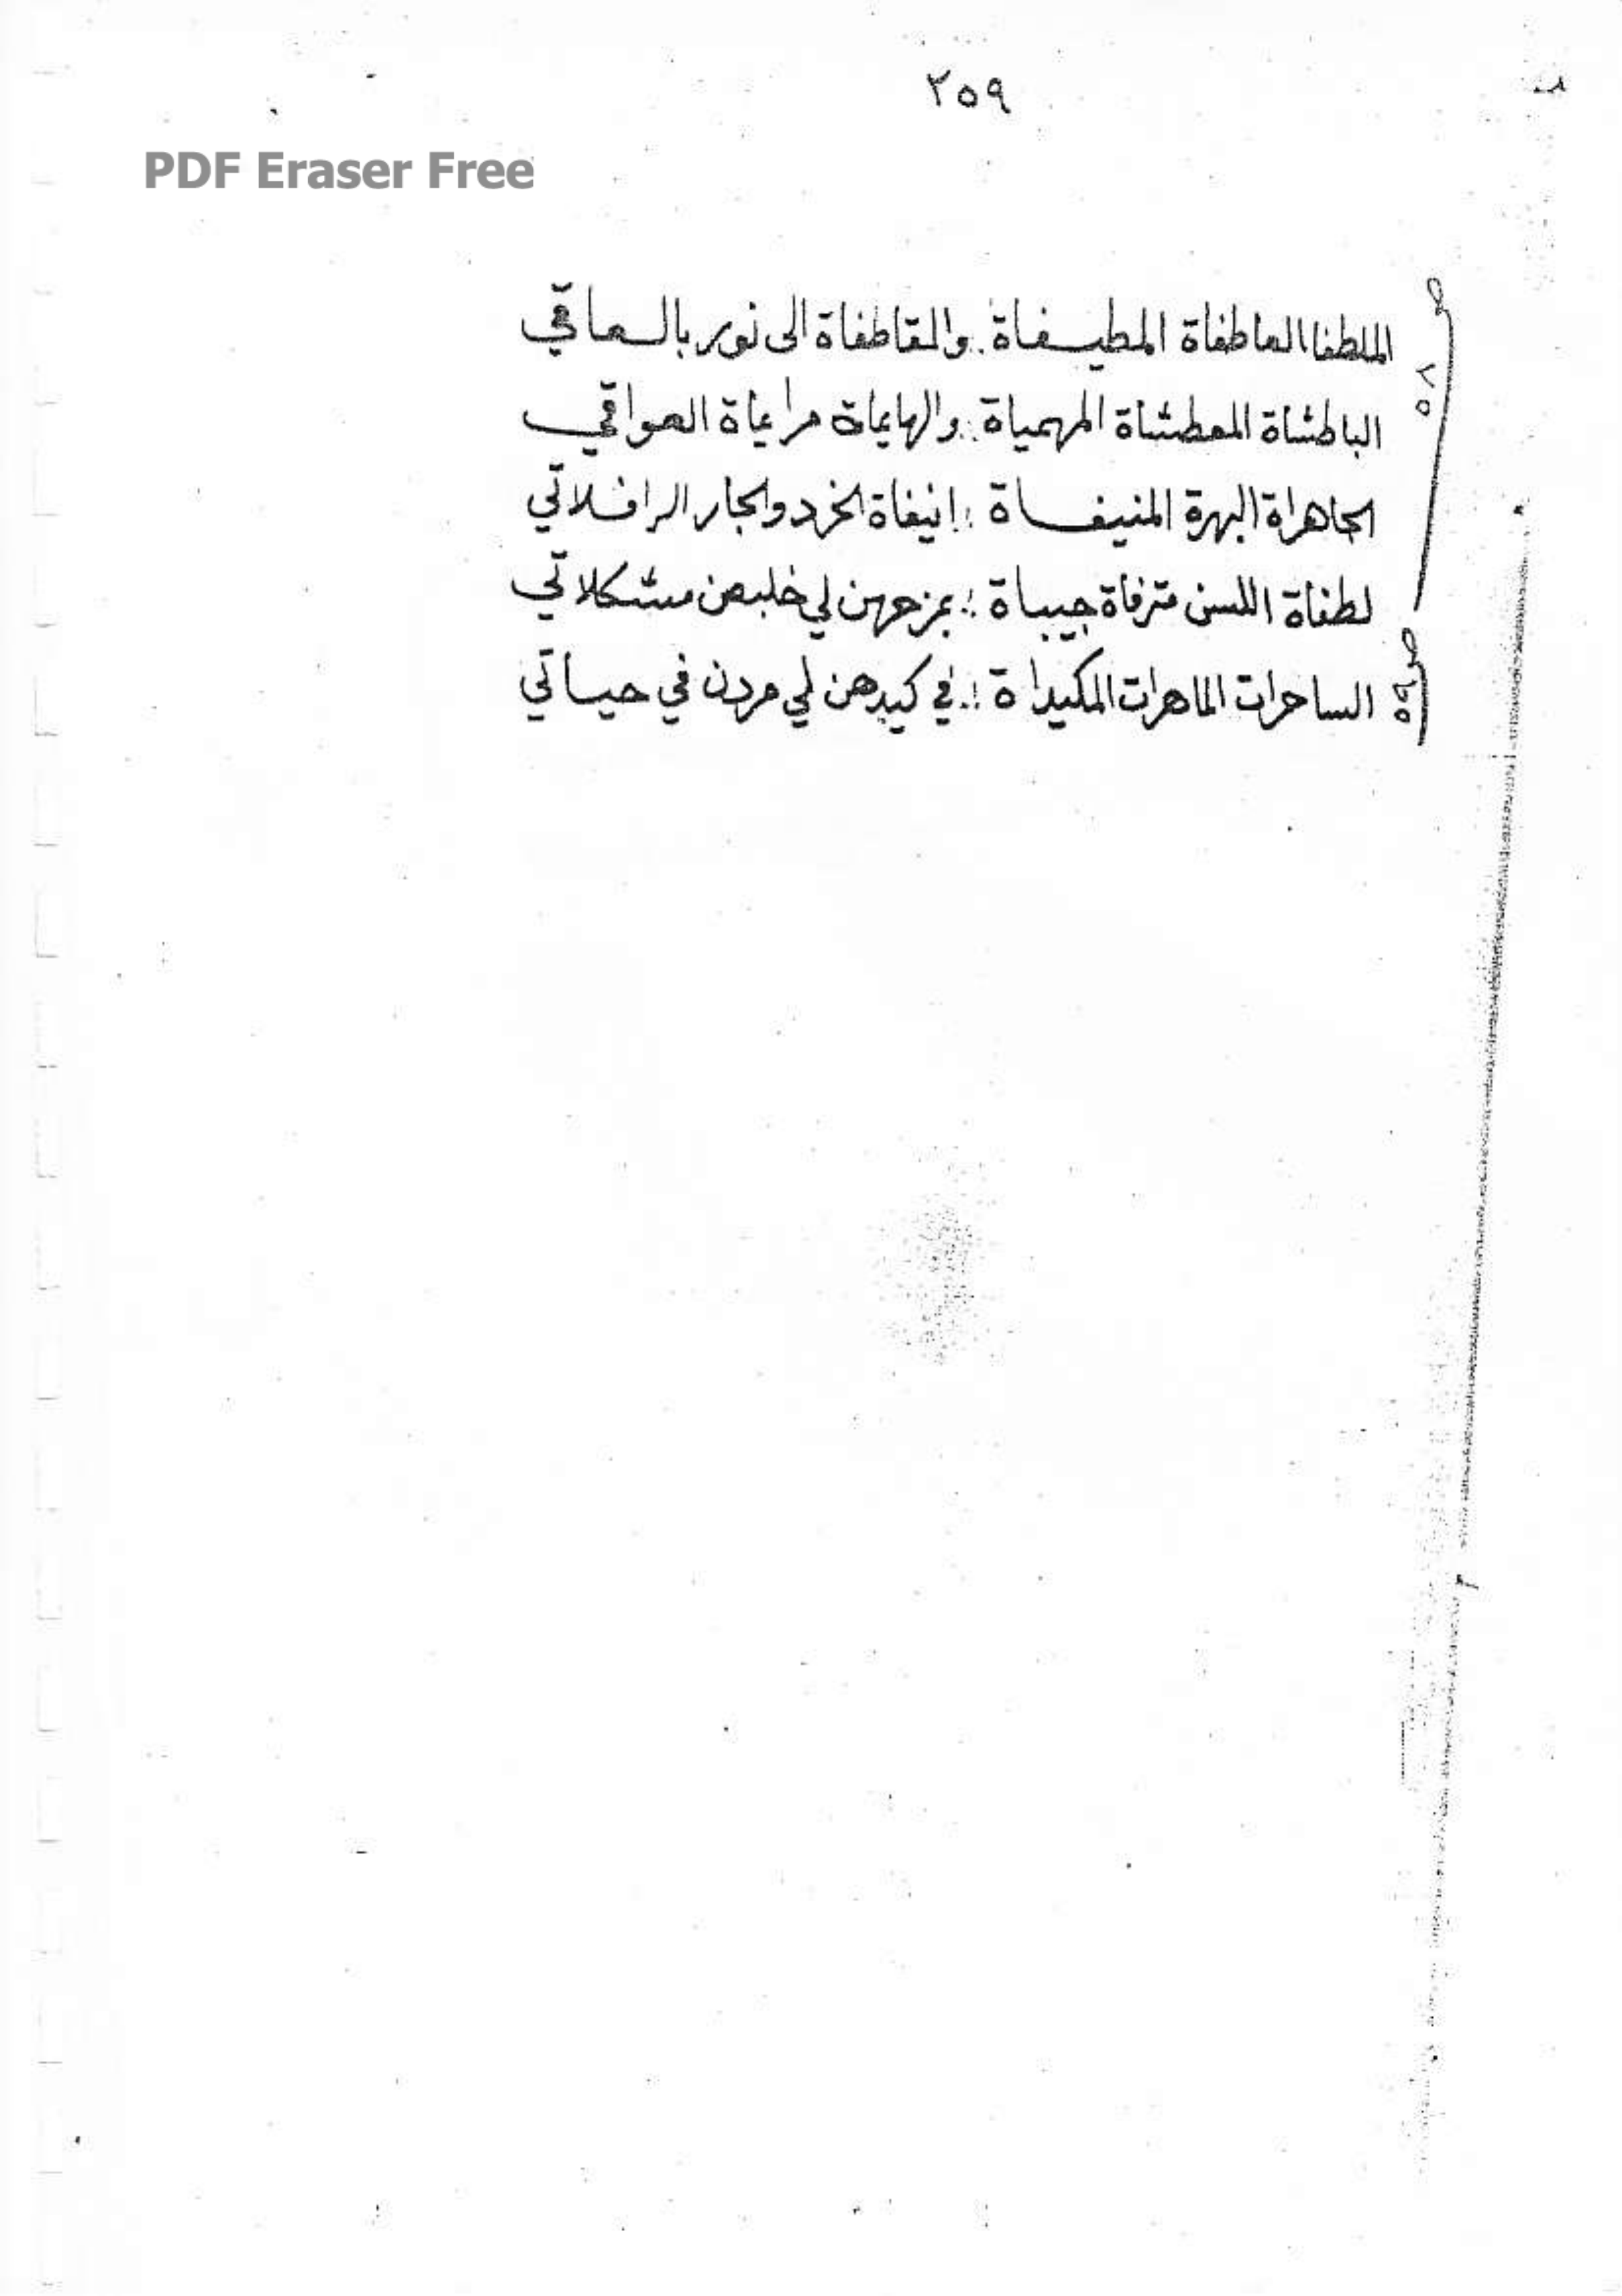 ٢٥٩
PDF Eraser Free
الملطفا العاطفاة المطيفاة ∴ والقاطفاة الى نور
الباطشاة المعطشاة المهمياة ∴ والهايماة مرايماة العواقي
الجاهراة البهرة المنيفاة ∴ انيفاة الخرد والجار الرافلاتي
لطفاة اللسن مترفاة جيباة ∴ بمزحهن لي خلبصن مشكلاتي
الساحرات الماهرات المكيداة ∴ في كيدهن لي مردن في حياتي